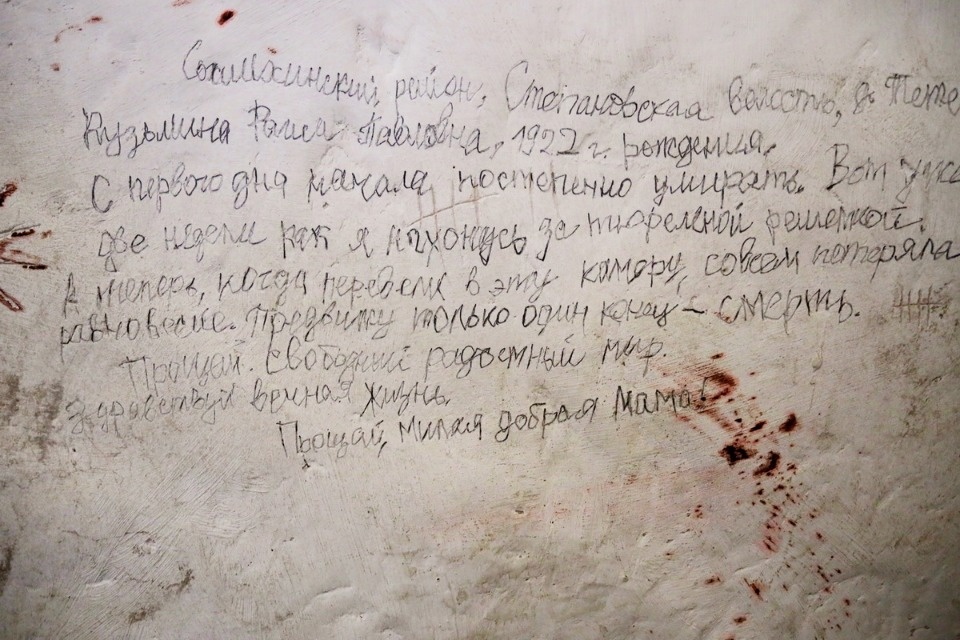 Сошихинский район, Степановская волость, д. Тете
Кузьмина Раиса Павловна, 1922 г. рождения.
С первого дня начала постепенно умирать. Вот уже
две недели как я нахожусь за тюремной решеткой.
А теперь, когда перевели в эту камеру, совсем потеряла
равновесие. Предвижу только один конец – смерть.
Прощай. Свободный радостный мир.
Здравствуй вечная жизнь.
Прощай, милая добрая мама!